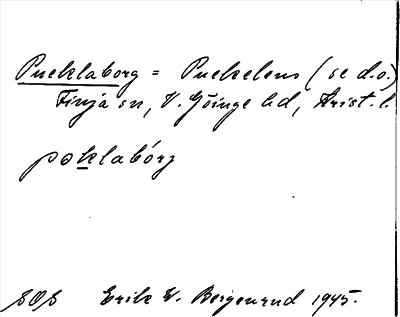 Pucklaborg = Puckelens (se d.o.)
Finja sn, V. Göinge hd, Krist. l.
pocklabórg
SOS Erik W. Bergenrud 1945.